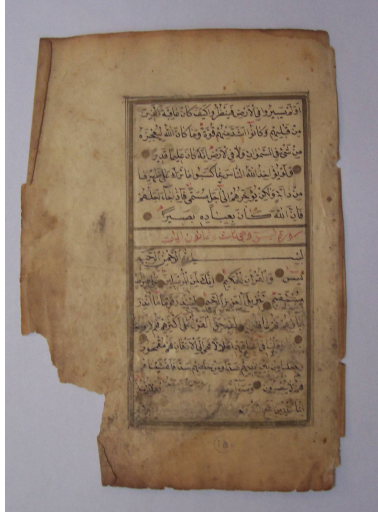 اَوَلَمْ يَسِيرُوا فِي الْاَرْضِ فَيَنْظُرُوا كَيْفَ كَانَ عَاقِبَةُ الَّذِينَ
مِنْ قَبْلِهِمْ وَكَانُوا اَشَدَّ مِنْهُمْ قُوَّةً وَمَا كَانَ اللهُ لِيُعْجِزَهُ
مِنْ شَيْءٍ فِي السَّمٰوَاتِ وَلَا فِي الْاَرْضِ اِنَّهُ كَانَ عَلِيمًا قَدِيرًا
وَلَوْ يُؤَاخِذُ اللهُ النَّاسَ بِمَا كَسَبُوا مَا تَرَكَ عَلٰى ظَهْرِهَا
مِنْ دَابَّةٍ وَلٰكِنْ يُؤَخِّرُهُمْ اِلٰى اَجَلٍ مُسَمًّى فَاِذَا جَاءَ اَجَلُهُمْ
فَاِنَّ اللهَ كَانَ بِعِبَادِهِ بَصِيرًا
سورة يس وهي ثلاث وثمانون ايات
بسم الله الرحمن الرحيم
يس وَالْقُرْاٰنِ الْحَكِيمِ اِنَّكَ لَمِنَ الْمُرْسَلِينَ عَلٰى صِرَاطٍ
مُسْتَقِيمٍ تَنْزِيلَ الْعَزِيزِ الرَّحِيمِ لِتُنْذِرَ قَوْمًا مَا اُنْذِرَ
اٰبَاؤُهُمْ فَهُمْ غَافِلُونَ لَقَدْ حَقَّ الْقَوْلُ عَلٰى اَكْثَرِهِمْ فَهُمْ لَا
جَعَلْنَا فِي اَعْنَاقِهِمْ اَغْلَالًا فَهِيَ اِلَى الْاَذْقَانِ فَهُمْ مُقْمَحُونَ
وَجَعَلْنَا مِنْ بَيْنِ اَيْدِيهِمْ سَدًّا وَمِنْ خَلْفِهِمْ سَدًّا فَاَغْشَيْنَاهُمْ
فَهُمْ لَا يُبْصِرُونَ وَسَوَاءٌ